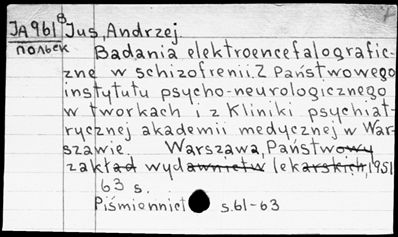 JA961⁸ Jus, Andrzej
польск
Badania elektroencefalografic-
zne w schizofrenii. Z Państwowego
instytutu psycho-neurologicznego
w tworkach i z Kliniki psychiat-
rycznej akademii medycznej w War-
szawie. Warszawa, Państwowy
zakład wydawnictw lekarskich, 1951
63 s.
Piśmiennict s. 61-63